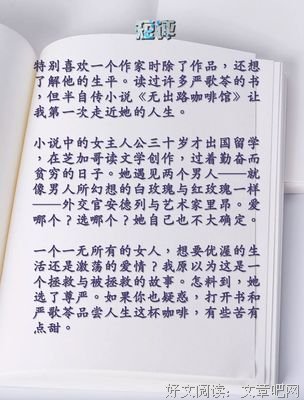 短评
特别喜欢一个作家时除了作品，还想
了解他的生平。读过许多严歌苓的书
，但半自传小说《无出路咖啡馆》让
我第一次走近她的人生。
小说中的女主人公三十岁才出国留学
，在芝加哥读文学创作，过着勤奋而
贫穷的日子。她遇见两个男人——就
像男人所幻想的白玫瑰与红玫瑰一样
——外交官安德列与艺术家里昂。爱
哪个？选哪个？她自己也不大确定。
一个一无所有的女人，想要优渥的生
活还是激荡的爱情？我原以为这是一
个拯救与被拯救的故事。怎料到，她
选了尊严。如果你也疑惑，打开书和
严歌苓品尝人生这杯咖啡，有些苦有
点甜。
好文阅读：文章吧网